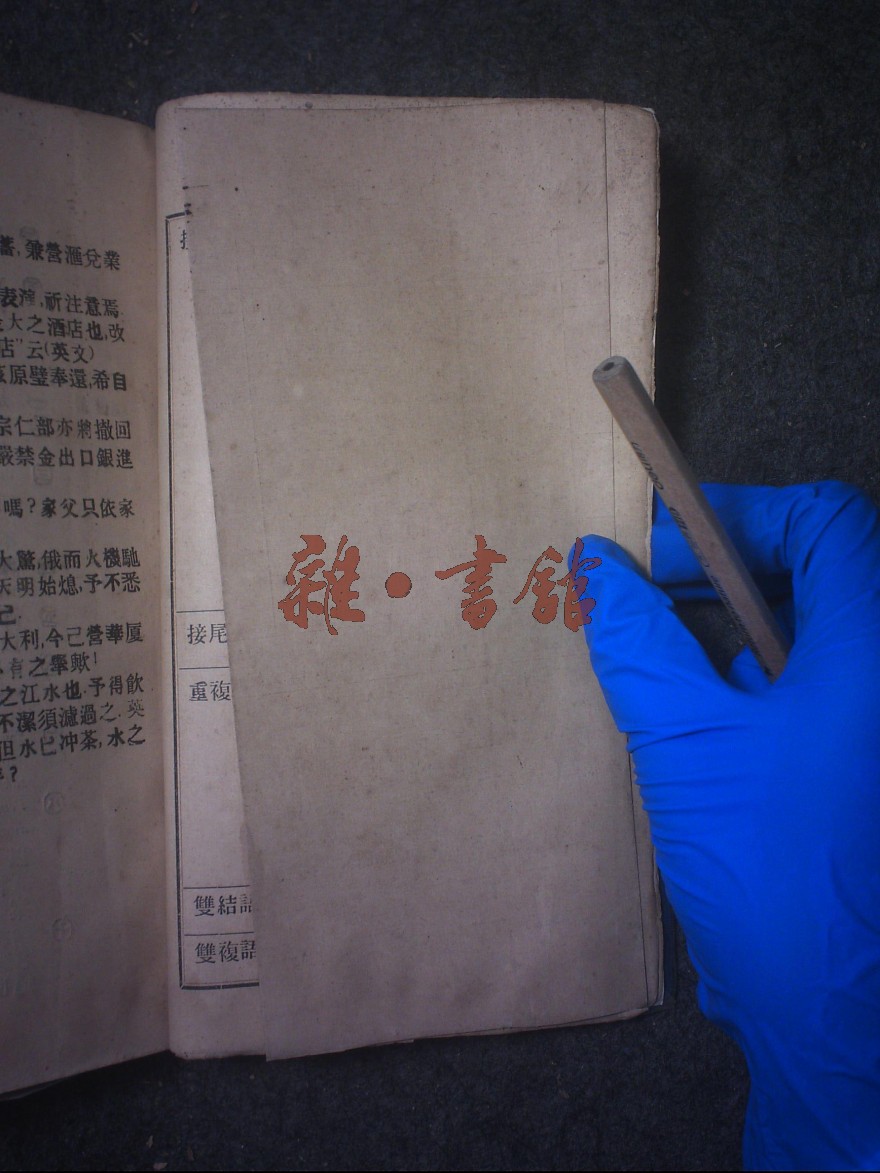 兼營滙兌業
表濱,祈注意焉.
大之酒店也,改
店"云(英文)
原璧奉還,希自
宗仁部亦將撤回
嚴禁金出口銀進
嗎?家父只依家
大驚,俄而火機馳
天明始熄,予不悉
己.
大利,今己營華厦
有之舉歟!
之江水也.予得飮
不潔須濾過之.英
但水已冲茶,水之
?
接尾
重複
雙結語
雙複語
雜·書館